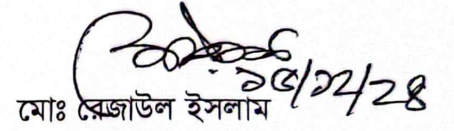 ১৫/১২/২৪
মোঃ রেজাউল ইসলাম